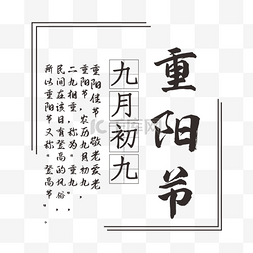 重阳节
九月初九
重阳佳节，敬老爱老
重阳节，农历九月初九
二九相重，称为“重九”
民间在该日有登高的风俗
所以重阳节又称“登高节”